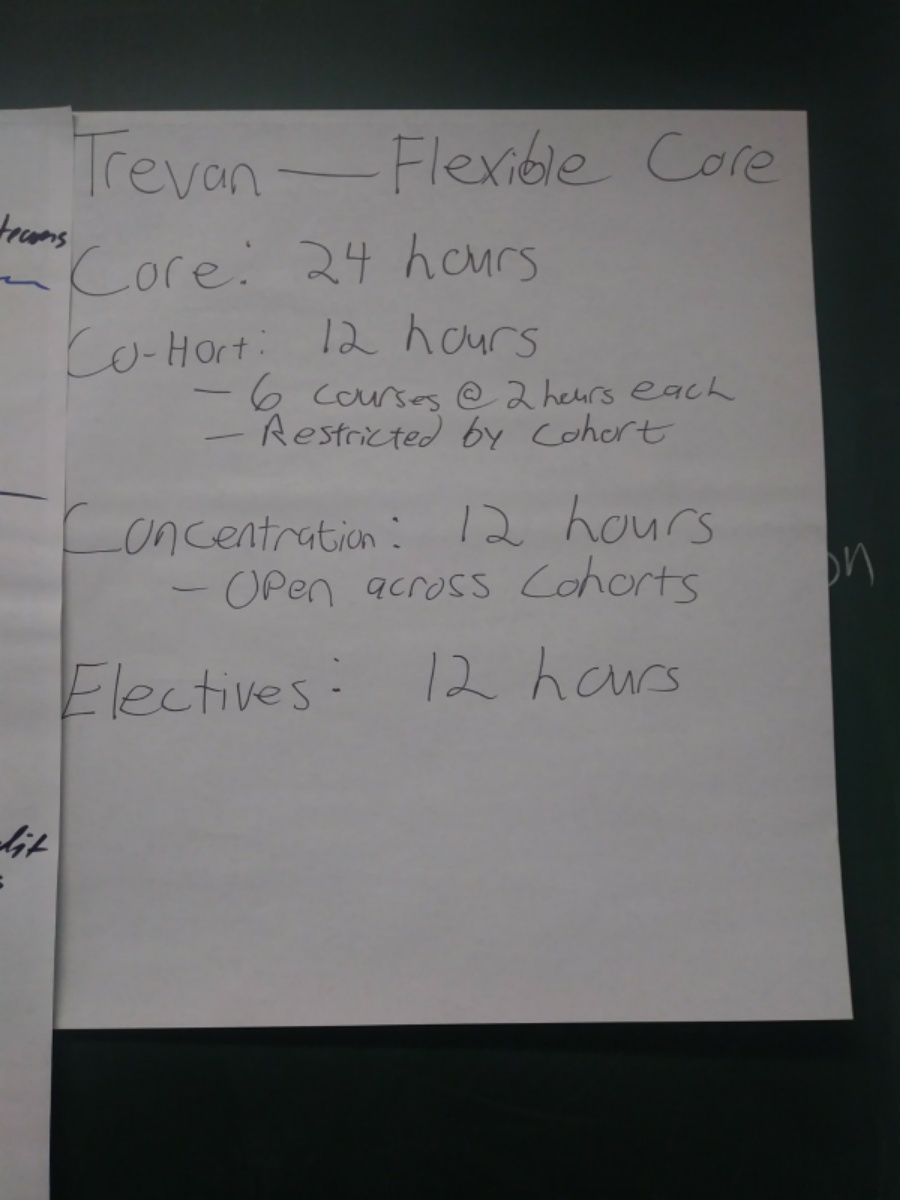 Trevan — Flexible Core
Core: 24 hours
Co-Hort: 12 hours
- 6 courses @ 2 hours each
- Restricted by cohort
Concentration: 12 hours
- Open across Cohorts
Electives: 12 hours
teams
on